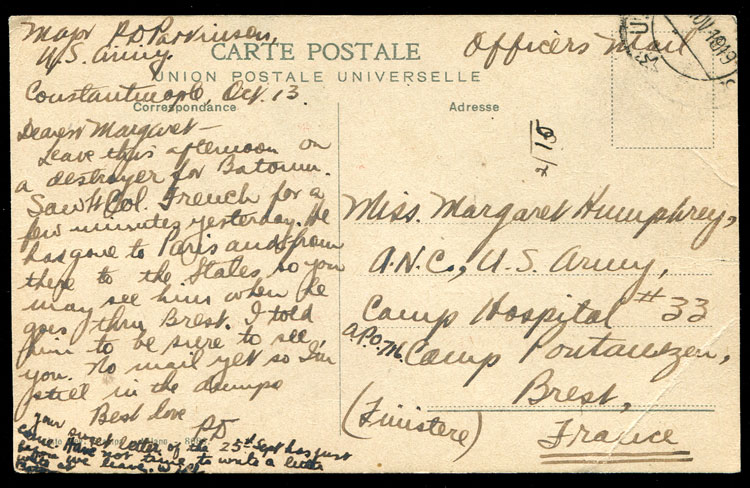 Major P.D. Parkinson,
U.S. Army.
CARTE POSTALE
Officers Mail
UNION POSTALE UNIVERSELLE
Constantinople, Oct. 13.
Correspondance
Adresse
Dearest Margaret—
Leave this afternoon on
a destroyer for Batoum.
Saw Col. French for a
few minutes yesterday. He
has gone to Paris and from
there to the States, so you
may see him when he
goes thru Brest. I told
him to be sure to see
you. No mail yet so I'm
still in the dumps
Best love
PD
your letter of the 25th Sept has just
come. Have not time to write a letter
before we leave. Will
2/15
Miss. Margaret Humphrey,
A.N.C., U.S. Army,
Camp Hospital #33
A.P.O. 716. Camp Pontanezen,
Brest,
(Finistere)
France